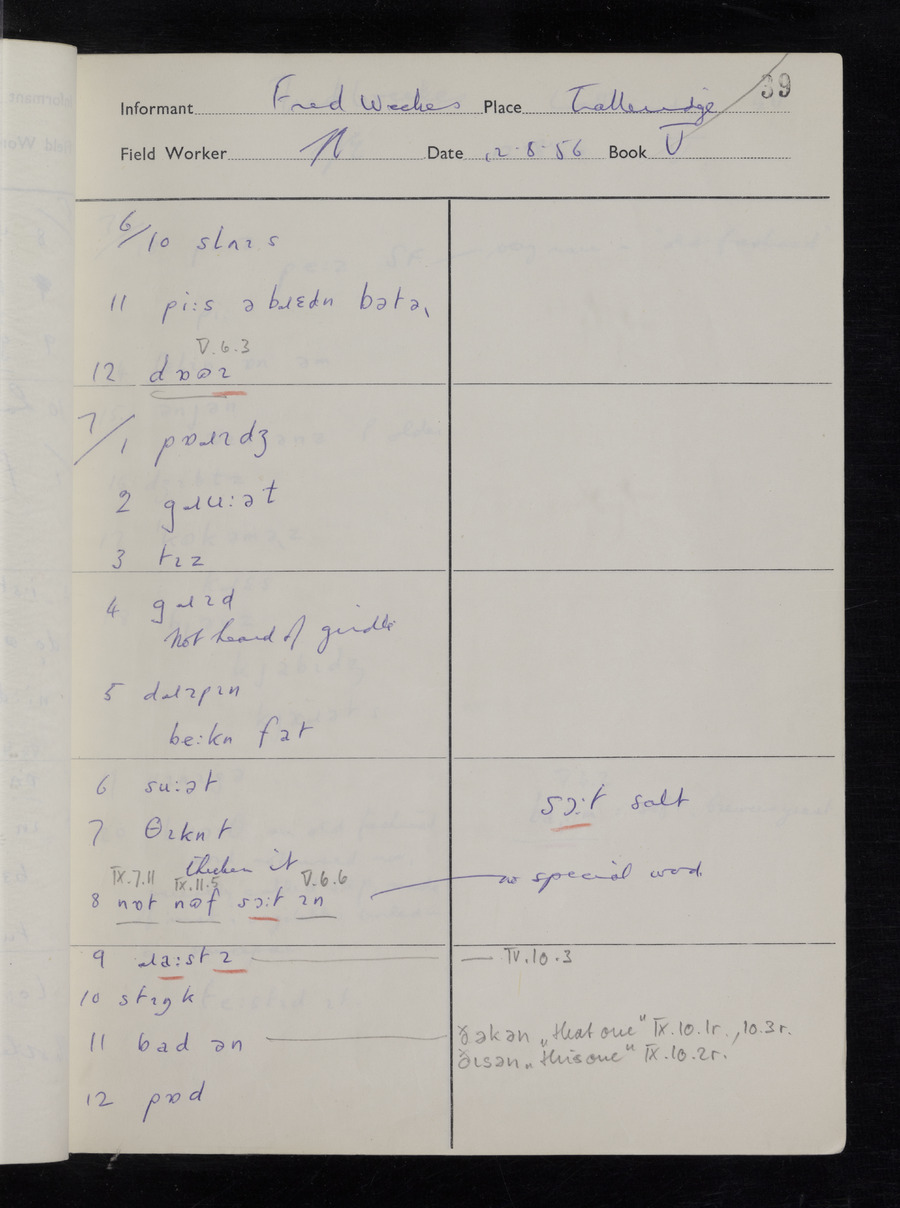 39
Informant Fred Weekes Place
Field Worker N Date 12-8-56 Book V
6/10 slʌɪs
11 piːs ə bɹɛdn bətə
V.6.3
12 dɒəɪ
7/1 pɒɹɪdʒ
2 gɹuːət
3 tɪz
4 gɹɪd
Not heard of girdle
5 dɹɪpɪn
beːkn fat
6 suːət
sɔːt salt
7 θɪknt
thicken it
IX.7.11 IX.11.5 V.6.6
8 nɒt nəf sɔːt ɪn
no special word
9 ɹaːstɪ — IV.10.3
10 stɪŋk
11 bad ən — ðəkən "that one" IX.10.1r., 10.3r.
ðɪsən "this one" IX.10.2r.
12 pɒd